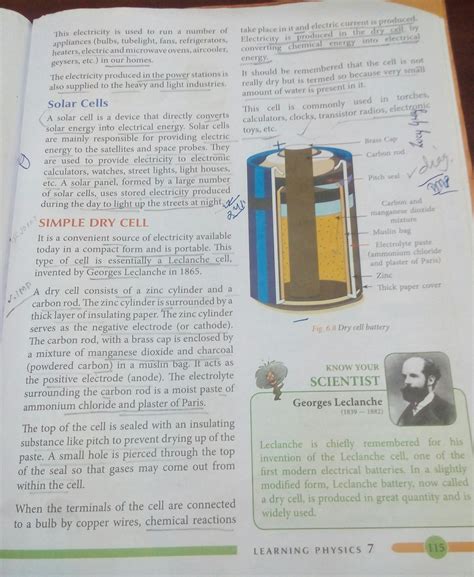 This electricity is used to run a number of
appliances (bulbs, tubelight, fans, refrigerators,
heaters, electric and microwave ovens, aircooler,
geysers, etc.) in our homes.
The electricity produced in the power stations is
also supplied to the heavy and light industries.
Solar Cells
A solar cell is a device that directly converts
solar energy into electrical energy. Solar cells
are mainly responsible for providing electric
energy to the satellites and space probes. They
are used to provide electricity to electronic
calculators, watches, street lights, light houses,
etc. A solar panel, formed by a large number
of solar cells, uses stored electricity produced
during the day to light up the streets at night.
SIMPLE DRY CELL
It is a convenient source of electricity available
today in a compact form and is portable. This
type of cell is essentially a Leclanche cell,
invented by Georges Leclanche in 1865.
A dry cell consists of a zinc cylinder and a
carbon rod. The zinc cylinder is surrounded by a
thick layer of insulating paper. The zinc cylinder
serves as the negative electrode (or cathode).
The carbon rod, with a brass cap is enclosed by
a mixture of manganese dioxide and charcoal
(powdered carbon) in a muslin bag. It acts as
the positive electrode (anode). The electrolyte
surrounding the carbon rod is a moist paste of
ammonium chloride and plaster of Paris.
The top of the cell is sealed with an insulating
substance like pitch to prevent drying up of the
paste. A small hole is pierced through the top
of the seal so that gases may come out from
within the cell.
When the terminals of the cell are connected
to a bulb by copper wires, chemical reactions
take place in it and electric current is produced.
Electricity is produced in the dry cell by
converting chemical energy into electrical
energy.
It should be remembered that the cell is not
really dry but is termed so because very small
amount of water is present in it.
This cell is commonly used in torches,
calculators, clocks, transistor radios, electronic
toys, etc.
Brass Cap
Carbon rod
Pitch seal
diag.
Carbon and
manganese dioxide
mixture
Muslin bag
Electrolyte paste
(ammonium chloride
and plaster of Paris)
Zinc
Thick paper cover
Fig. 6.8 Dry cell battery
KNOW YOUR
SCIENTIST
Georges Leclanche
(1839 — 1882)
Leclanche is chiefly remembered for his
invention of the Leclanche cell, one of the
first modern electrical batteries. In a slightly
modified form, Leclanche battery, now called
a dry cell, is produced in great quantity and is
widely used.
LEARNING PHYSICS 7
115